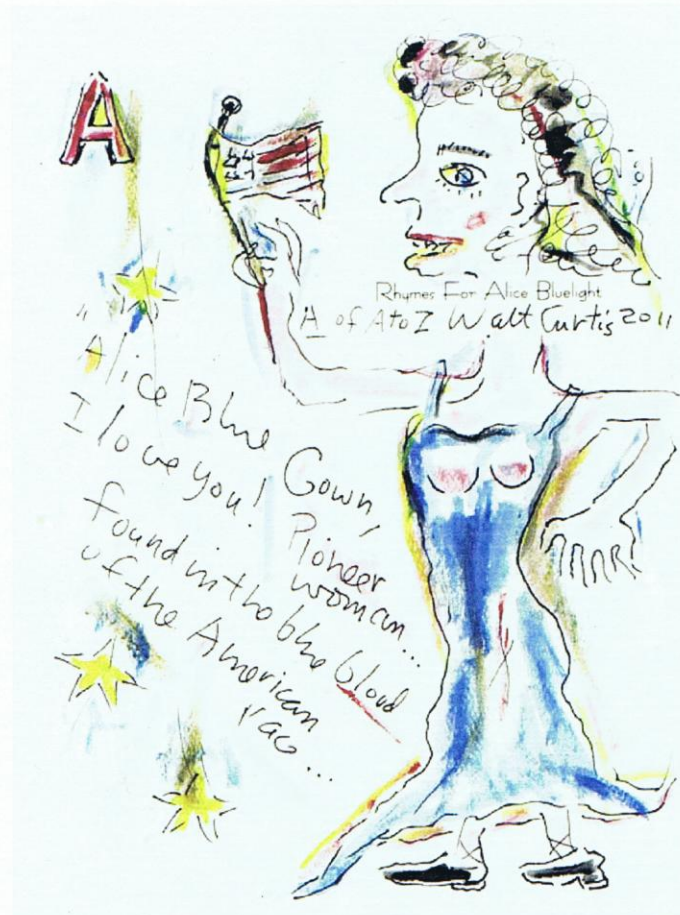 A
Rhymes For Alice Bluelight
A of A to Z Walt Curtis 2011
"Alice Blue Gown,
I love you! Pioneer
woman...
found in the blue blood
of the American